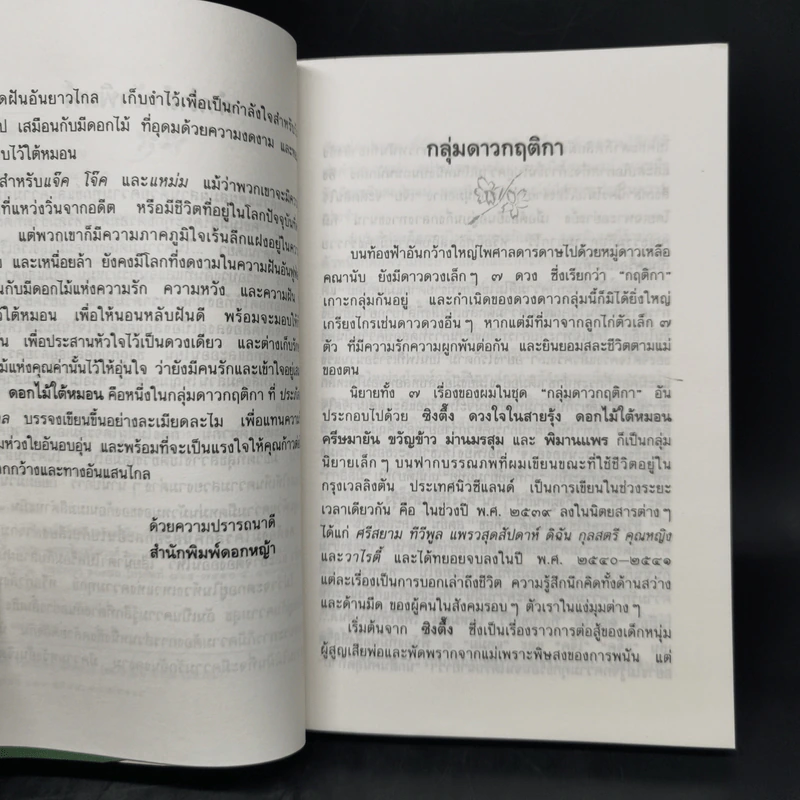 ดฝันอันยาวไกล เก็บงำไว้เพื่อเป็นกำลังใจสำหรับ
ป เสมือนกับมีดอกไม้ ที่อุดมด้วยความงดงาม และ
บไว้ใต้หมอน
สำหรับแจ๊ค โจ๊ค และแหม่ม แม้ว่าพวกเขาจะมี
ที่แหว่งวิ่นจากอดีต หรือมีชีวิตที่อยู่ในโลกปัจจุบัน
แต่พวกเขาก็มีความภาคภูมิใจเร้นลึกแฝงอยู่ใน
และเหนื่อยล้า ยังคงมีโลกที่งดงามในความฝันอัน
นกับมีดอกไม้แห่งความรัก ความหวัง และความฝัน
ว้ใต้หมอน เพื่อให้นอนหลับฝันดี พร้อมจะมอบให้
น เพื่อประสานหัวใจไว้เป็นดวงเดียว และต่างเก็บ
ม้แห่งคุณค่านั้นไว้ให้อุ่นใจ ว่ายังมีคนรักและเข้าใจอยู่
ดอกไม้ใต้หมอน คือหนึ่งในกลุ่มดาวกฤติกา ที่
ล บรรจงเขียนขึ้นอย่างละเมียดละไม เพื่อแทนความ
มห่วงใยอันอบอุ่น และพร้อมที่จะเป็นแรงใจให้คุณก้าว
กกว้างและทางอันแสนไกล
ด้วยความปรารถนาดี
สำนักพิมพ์ดอกหญ้า
กลุ่มดาวกฤติกา
บนท้องฟ้าอันกว้างใหญ่ไพศาลดารดาษไปด้วยหมู่ดาวเหลือ
คณานับ ยังมีดาวดวงเล็กๆ ๗ ดวง ซึ่งเรียกว่า "กฤติกา"
เกาะกลุ่มกันอยู่ และกำเนิดของดวงดาวกลุ่มนี้ก็มิได้ยิ่งใหญ่
เกรียงไกรเช่นดาวดวงอื่นๆ หากแต่มีที่มาจากลูกไก่ตัวเล็ก ๗
ตัว ที่มีความรักความผูกพันต่อกัน และยินยอมสละชีวิตตามแม่
ของตน
นิยายทั้ง ๗ เรื่องของผมในชุด "กลุ่มดาวกฤติกา" อัน
ประกอบไปด้วย ซิงตึ๊ง ดวงใจในสายรุ้ง ดอกไม้ใต้หมอน
ครีษมายัน ขวัญข้าว ม่านมรสุม และ พิมานแพร ก็เป็นกลุ่ม
นิยายเล็กๆ บนฟากบรรณภพที่ผมเขียนขณะที่ใช้ชีวิตอยู่ใน
กรุงเวลลิงตัน ประเทศนิวซีแลนด์ เป็นการเขียนในช่วงระยะ
เวลาเดียวกัน คือ ในช่วงปี พ.ศ. ๒๕๓๙ ลงในนิตยสารต่างๆ
ได้แก่ ศรีสยาม ทีวีพูล แพรวสุดสัปดาห์ ดิฉัน กุลสตรี คุณหญิง
และวาไรตี้ และได้ทยอยจบลงในปี พ.ศ. ๒๕๔๐-๒๕๔๑
แต่ละเรื่องเป็นการบอกเล่าถึงชีวิต ความรู้สึกนึกคิดทั้งด้านสว่าง
และด้านมืด ของผู้คนในสังคมรอบๆ ตัวเราในแง่มุมต่างๆ
เริ่มต้นจาก ซิงตึ๊ง ซึ่งเป็นเรื่องราวการต่อสู้ของเด็กหนุ่ม
ผู้สูญเสียพ่อและพัดพรากจากแม่เพราะพิษสงของการพนัน แต่